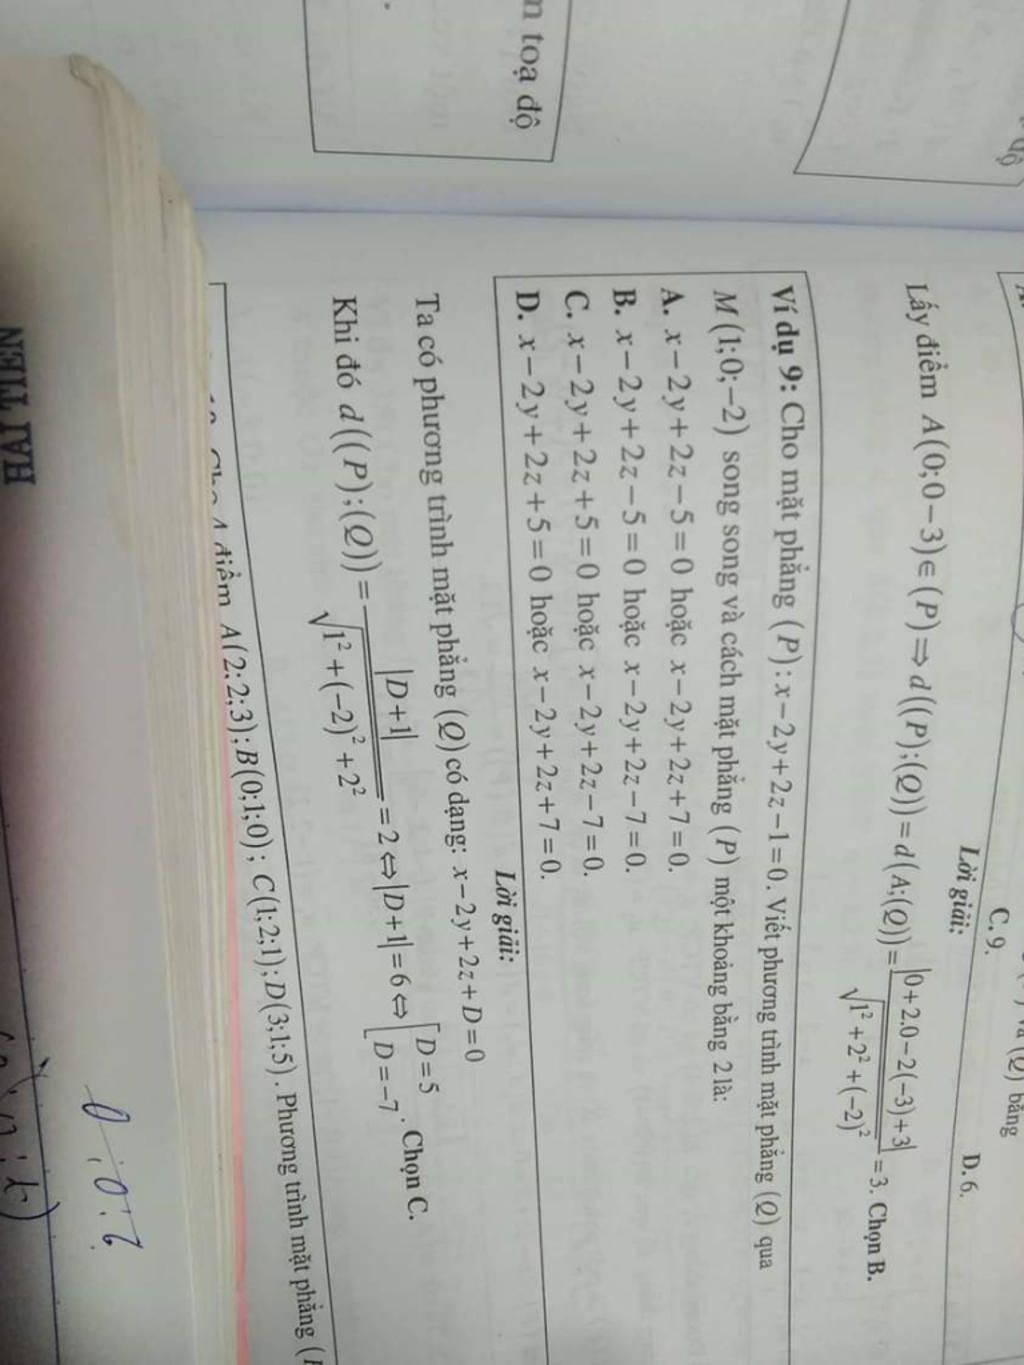 n toạ độ
độ
(Q) bằng
C. 9.
D. 6.
Lời giải:
Lấy điểm A(0;0−3)∈(P)⇒d((P);(Q))=d(A;(Q))=|0+2.0−2(−3)+3|/√1²+2²+(−2)²=3. Chọn B.
Ví dụ 9: Cho mặt phẳng (P): x−2y+2z−1=0. Viết phương trình mặt phẳng (Q) qua
M(1;0;−2) song song và cách mặt phẳng (P) một khoảng bằng 2 là:
A. x−2y+2z−5=0 hoặc x−2y+2z+7=0.
B. x−2y+2z−5=0 hoặc x−2y+2z−7=0.
C. x−2y+2z+5=0 hoặc x−2y+2z−7=0.
D. x−2y+2z+5=0 hoặc x−2y+2z+7=0.
Lời giải:
Ta có phương trình mặt phẳng (Q) có dạng: x−2y+2z+D=0
Khi đó d((P);(Q))=|D+1|/√1²+(−2)²+2²=2⇔|D+1|=6⇔[D=5 D=−7. Chọn C.
điểm A(2;2;3); B(0;1;0); C(1;2;1); D(3;1;5). Phương trình mặt phẳng (
HAI TIEN